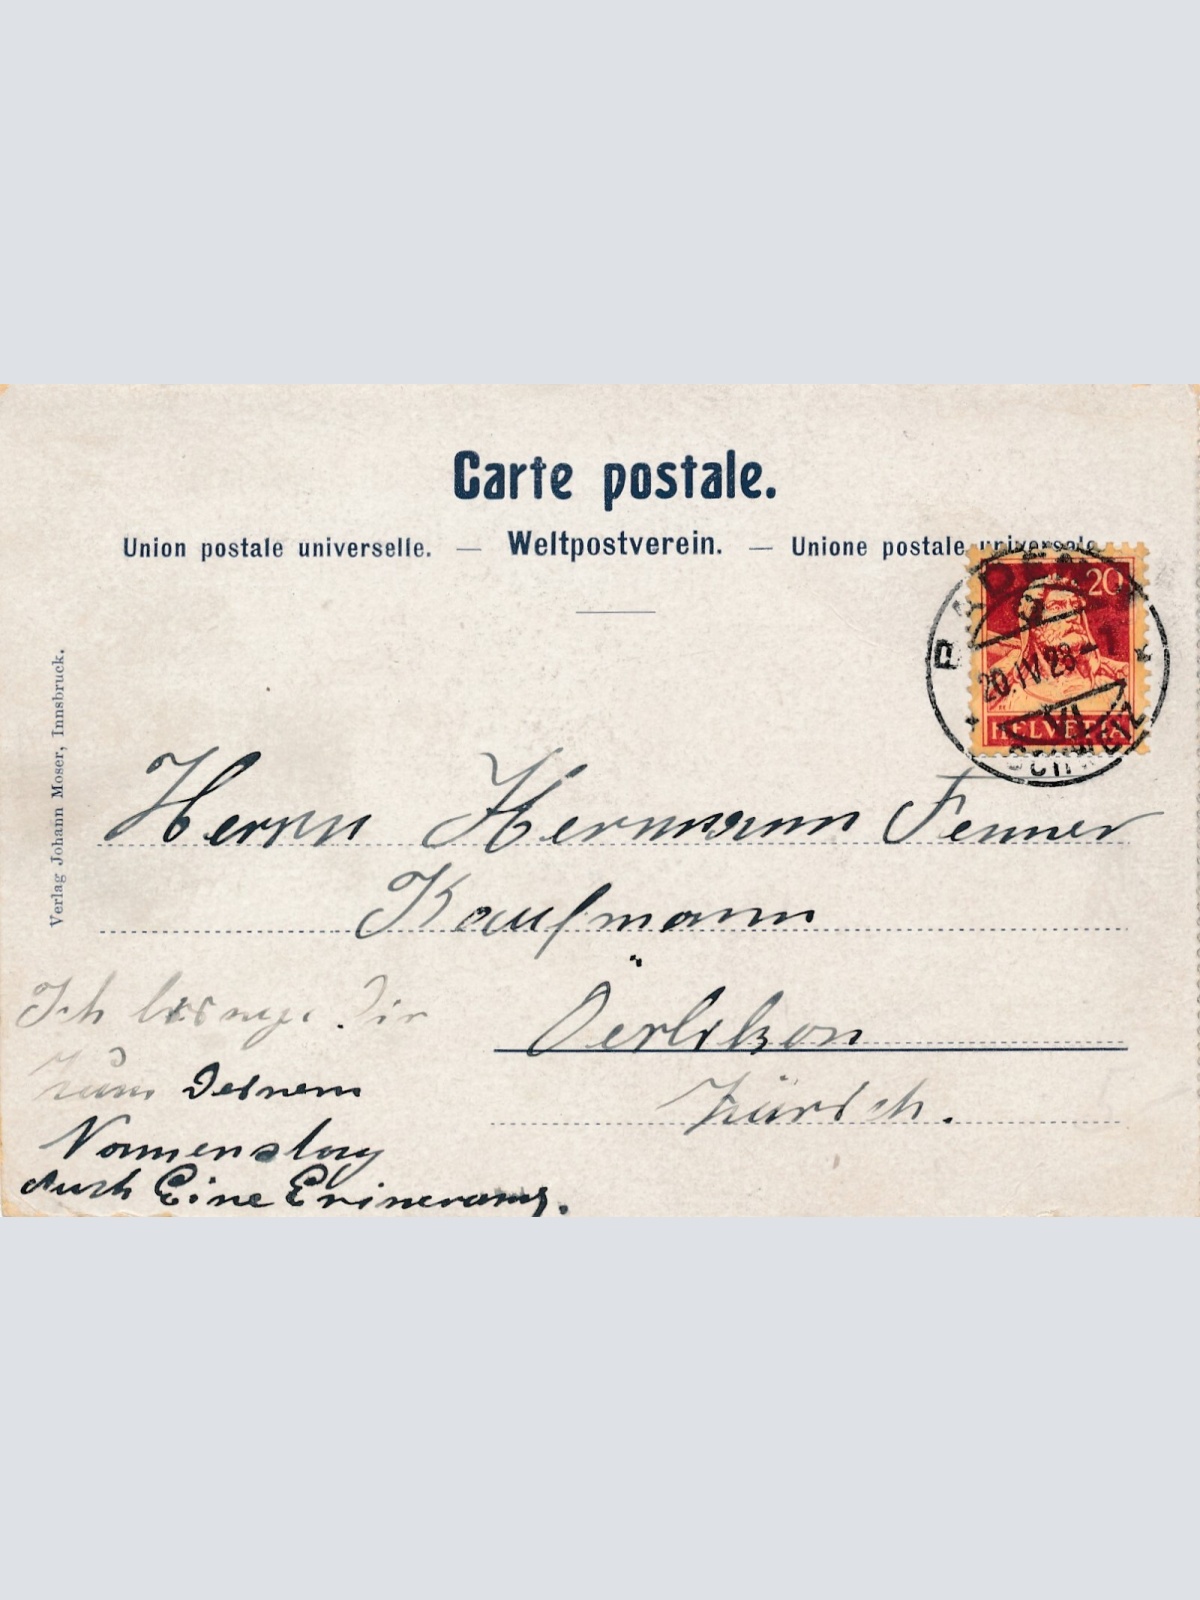 Carte postale.
Union postale universelle. — Weltpostverein. — Unione postale universale
20
BADEN
20.IV.23-1
VI
SCHWEIZ
HELVETIA
Verlag Johann Moser, Innsbruck.
Herrn Hermann Fenner
Kaufmann
Oerlikon
Zürich.
Ich bringe Dir
zum Deinem
Nammenstag
Auch Eine Erinerung.